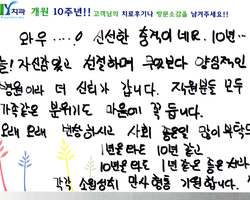 치과 개원 10주년!! 고객님의 치료후기나 방문소감을 남겨주세요!!
와우 ....! 신선한 충격이네요. 10년...
자신감있고 친절하며 무엇보다 양심적인
병원이라 더 신뢰가 갑니다. 직원분들 모두
가족같은 분위기도 마음에 꼭 듭니다.
오래 오래 번창하시고 사회 좋은일 많이 부탁드
1년은 마음도 10년 같고
10년은 마음도 1년 같은 좋은 치과
각각 소원성취 만사형통 기원합니다.